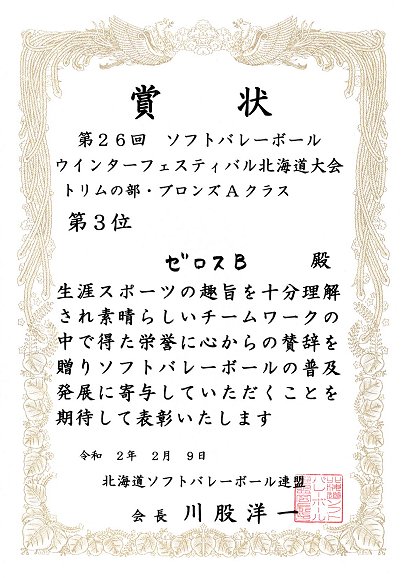 賞 状
第26回 ソフトバレーボール
ウインターフェスティバル北海道大会
トリムの部・ブロンズAクラス
第3位
ゼロスB 殿
生涯スポーツの趣旨を十分理解
され素晴らしいチームワークの
中で得た栄誉に心からの賛辞を
贈りソフトバレーボールの普及
発展に寄与していただくことを
期待して表彰いたします
令和 2年 2月 9日
北海道ソフトバレーボール連盟
会長 川股洋一